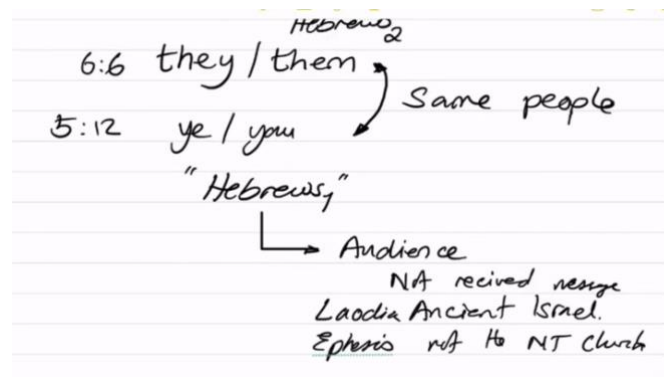 Hebrews2
6:6 they / them
Same people
5:12 ye / you
"Hebrews,"
Audience
Not recived message
Laodia Ancient Israel.
Ephesis not the NT Church